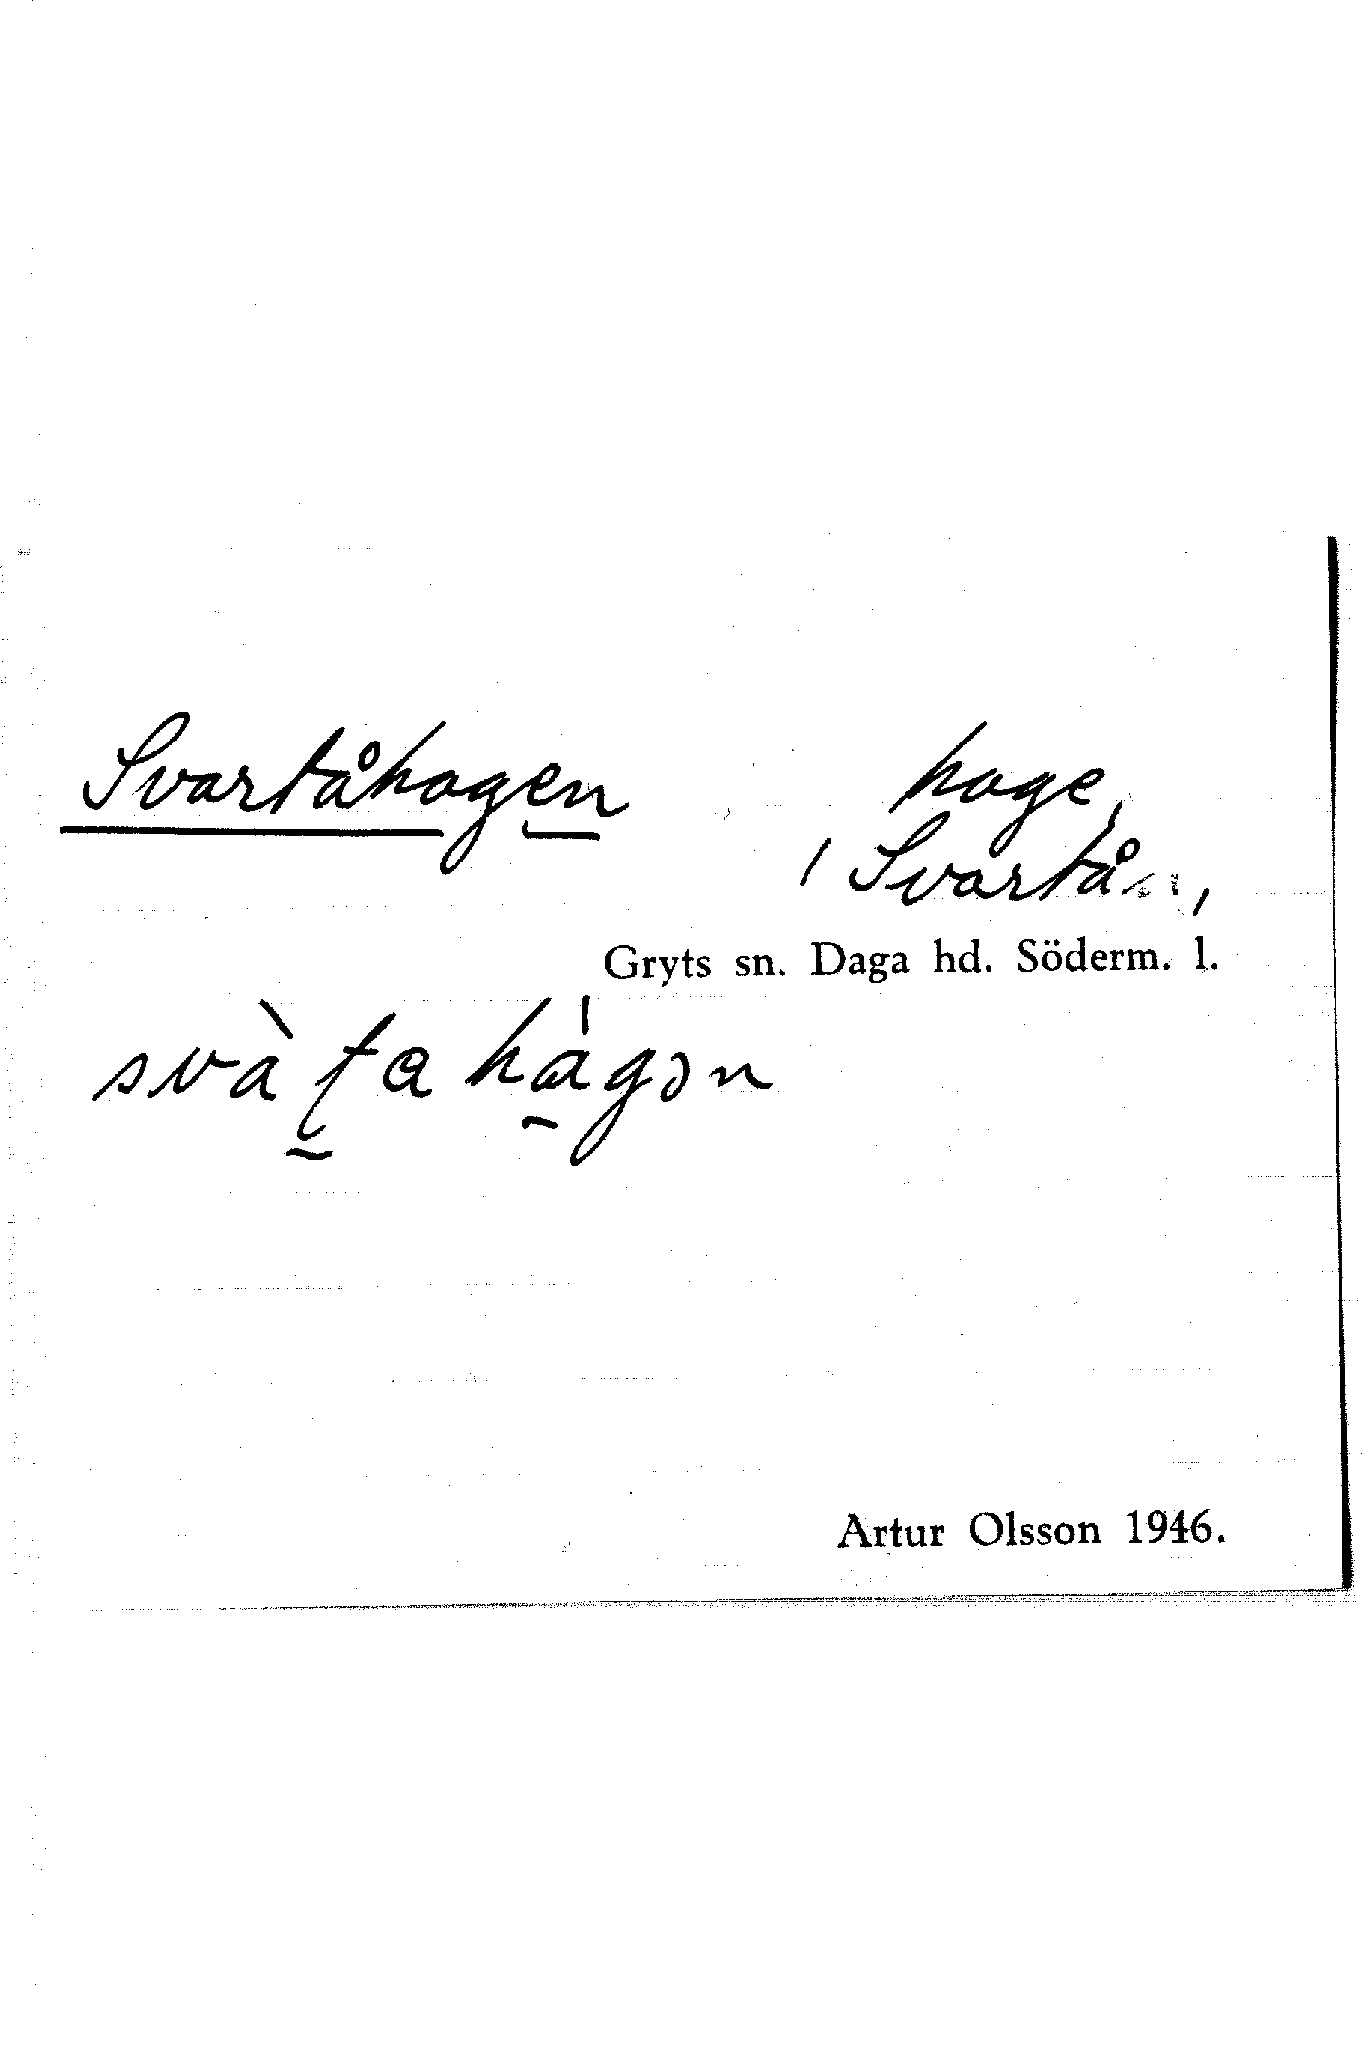 Svartåhagen hage,
/ Svartå /
Gryts sn. Daga hd. Söderm. l.
svàʈa hágən
Artur Olsson 1946.